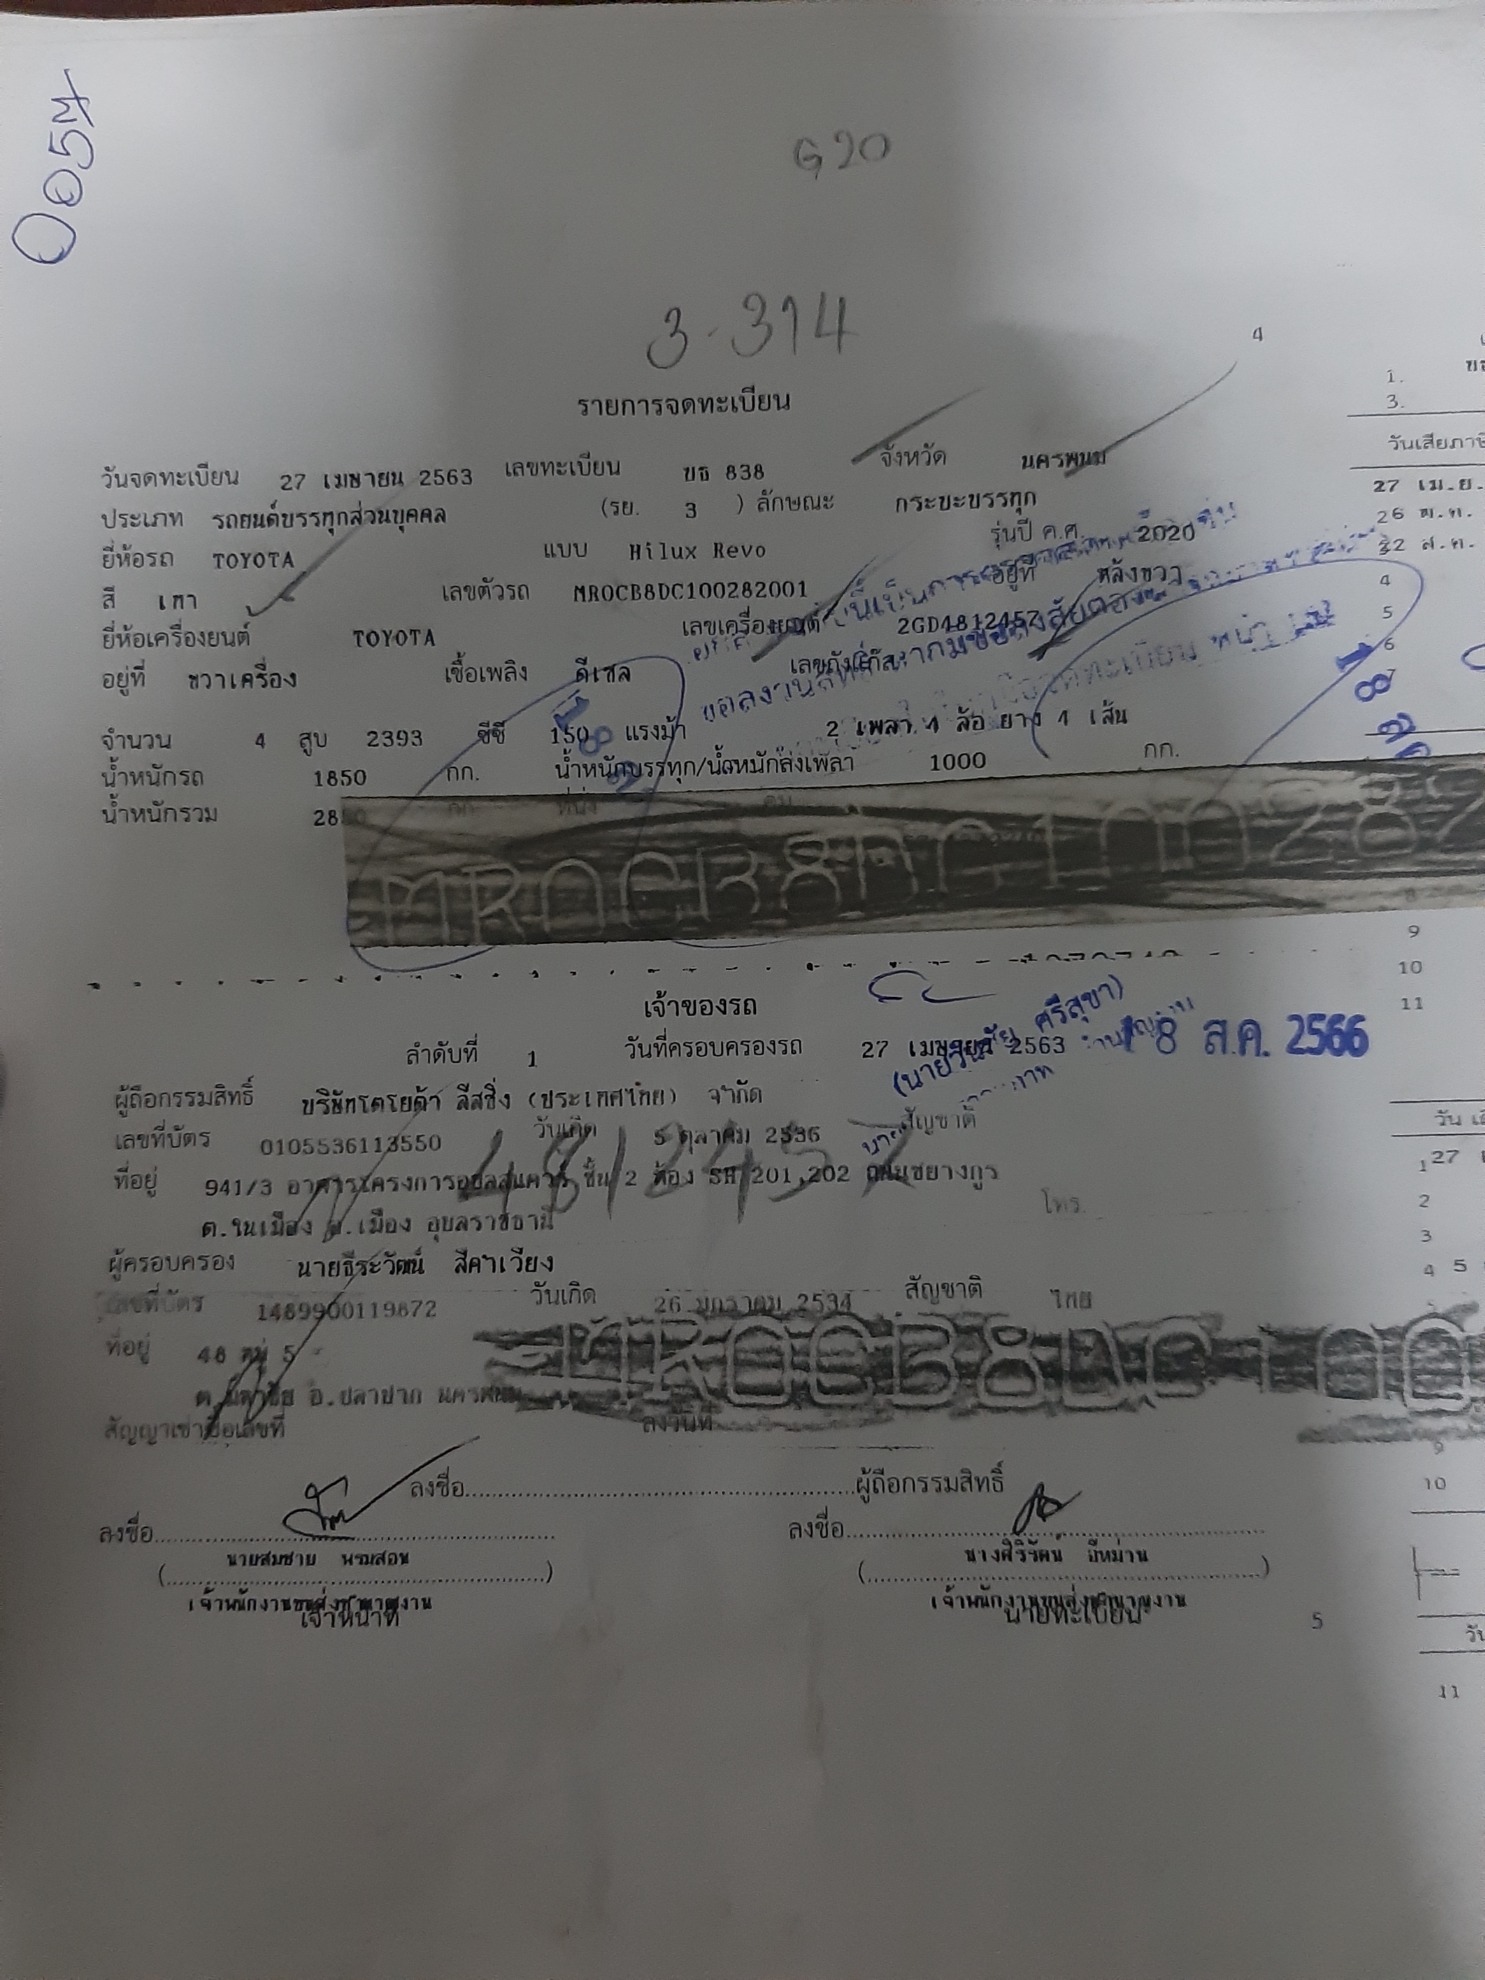 G20
3-314
4
รายการจดทะเบียน
1.
3.
วันจดทะเบียน 27 เมษายน 2563 เลขทะเบียน ขธ 838 จังหวัด นครพนม
วันเสียภาษี
ประเภท รถยนต์บรรทุกส่วนบุคคล (รย. 3 ) ลักษณะ กระบะบรรทุก
27 เม.ย.
ยี่ห้อรถ TOYOTA แบบ Hilux Revo รุ่นปี ค.ศ. 2020
26 พ.ค.
สี เทา เลขตัวรถ MR0CB8DC100282001 อยู่ที่ หลังขวา
22 ส.ค.
4
ยี่ห้อเครื่องยนต์ TOYOTA เลขเครื่องยนต์ 2GD4812457
5
อยู่ที่ ขวาเครื่อง เชื้อเพลิง ดีเซล เลขถังแก๊ส
6
7
จำนวน 4 สูบ 2393 ซีซี 150 แรงม้า 2 เพลา 4 ล้อ ยาง 4 เส้น
น้ำหนักรถ 1850 กก. น้ำหนักบรรทุก/น้ำหนักลงเพลา 1000 กก.
น้ำหนักรวม
MR0CB8DC100282
9
10
11
เจ้าของรถ
(นายวันชัย ศรีสุขา)
18 ส.ค. 2566
ลำดับที่ 1 วันที่ครอบครองรถ 27 เมษายน 2563
ผู้ถือกรรมสิทธิ์ บริษัทโตโยต้า ลีสซิ่ง (ประเทศไทย) จำกัด
เลขที่บัตร 0105536113550 วันเกิด 5 ตุลาคม 2536 สัญชาติ
4812457
ที่อยู่ 941/3 ชั้น 2 ห้อง SH 201,202 ถนนชยางกูร
1 27
ต.ในเมือง อ.เมือง อุบลราชธานี โทร.
2
3
ผู้ครอบครอง นายธีระวัฒน์ สีคำเวียง
4 5
เลขที่บัตร 1489900119872 วันเกิด 26 มกราคม 2534 สัญชาติ ไทย
ที่อยู่ 48 หมู่ 5
MR0CB8DC100
อ.ปลาปาก นครพนม
สัญญาเช่าซื้อเลขที่ ลงวันที่
9
10
ลงชื่อ ผู้ถือกรรมสิทธิ์
ลงชื่อ ลงชื่อ
นายสมชาย พรมสอน นางศิริรัตน์ อีหม่าน
เจ้าพนักงานขนส่งชำนาญงาน เจ้าพนักงานขนส่งชำนาญงาน
เจ้าหน้าที่ นายทะเบียน
5
11